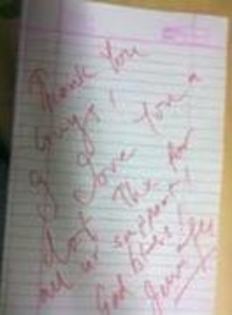 Thank You
Guys!
I Love You a
lot Thx for
all ur support!
God bless!